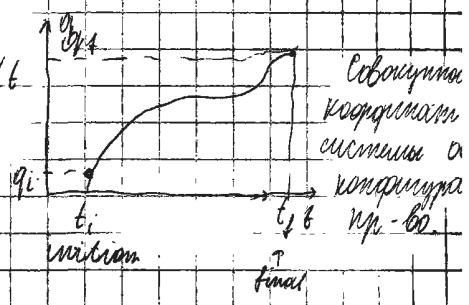 q_f
t
q_i
t_i
t_f t
initian
↑
final
Совокупно
координат
системы о
конфигура
пр-во.